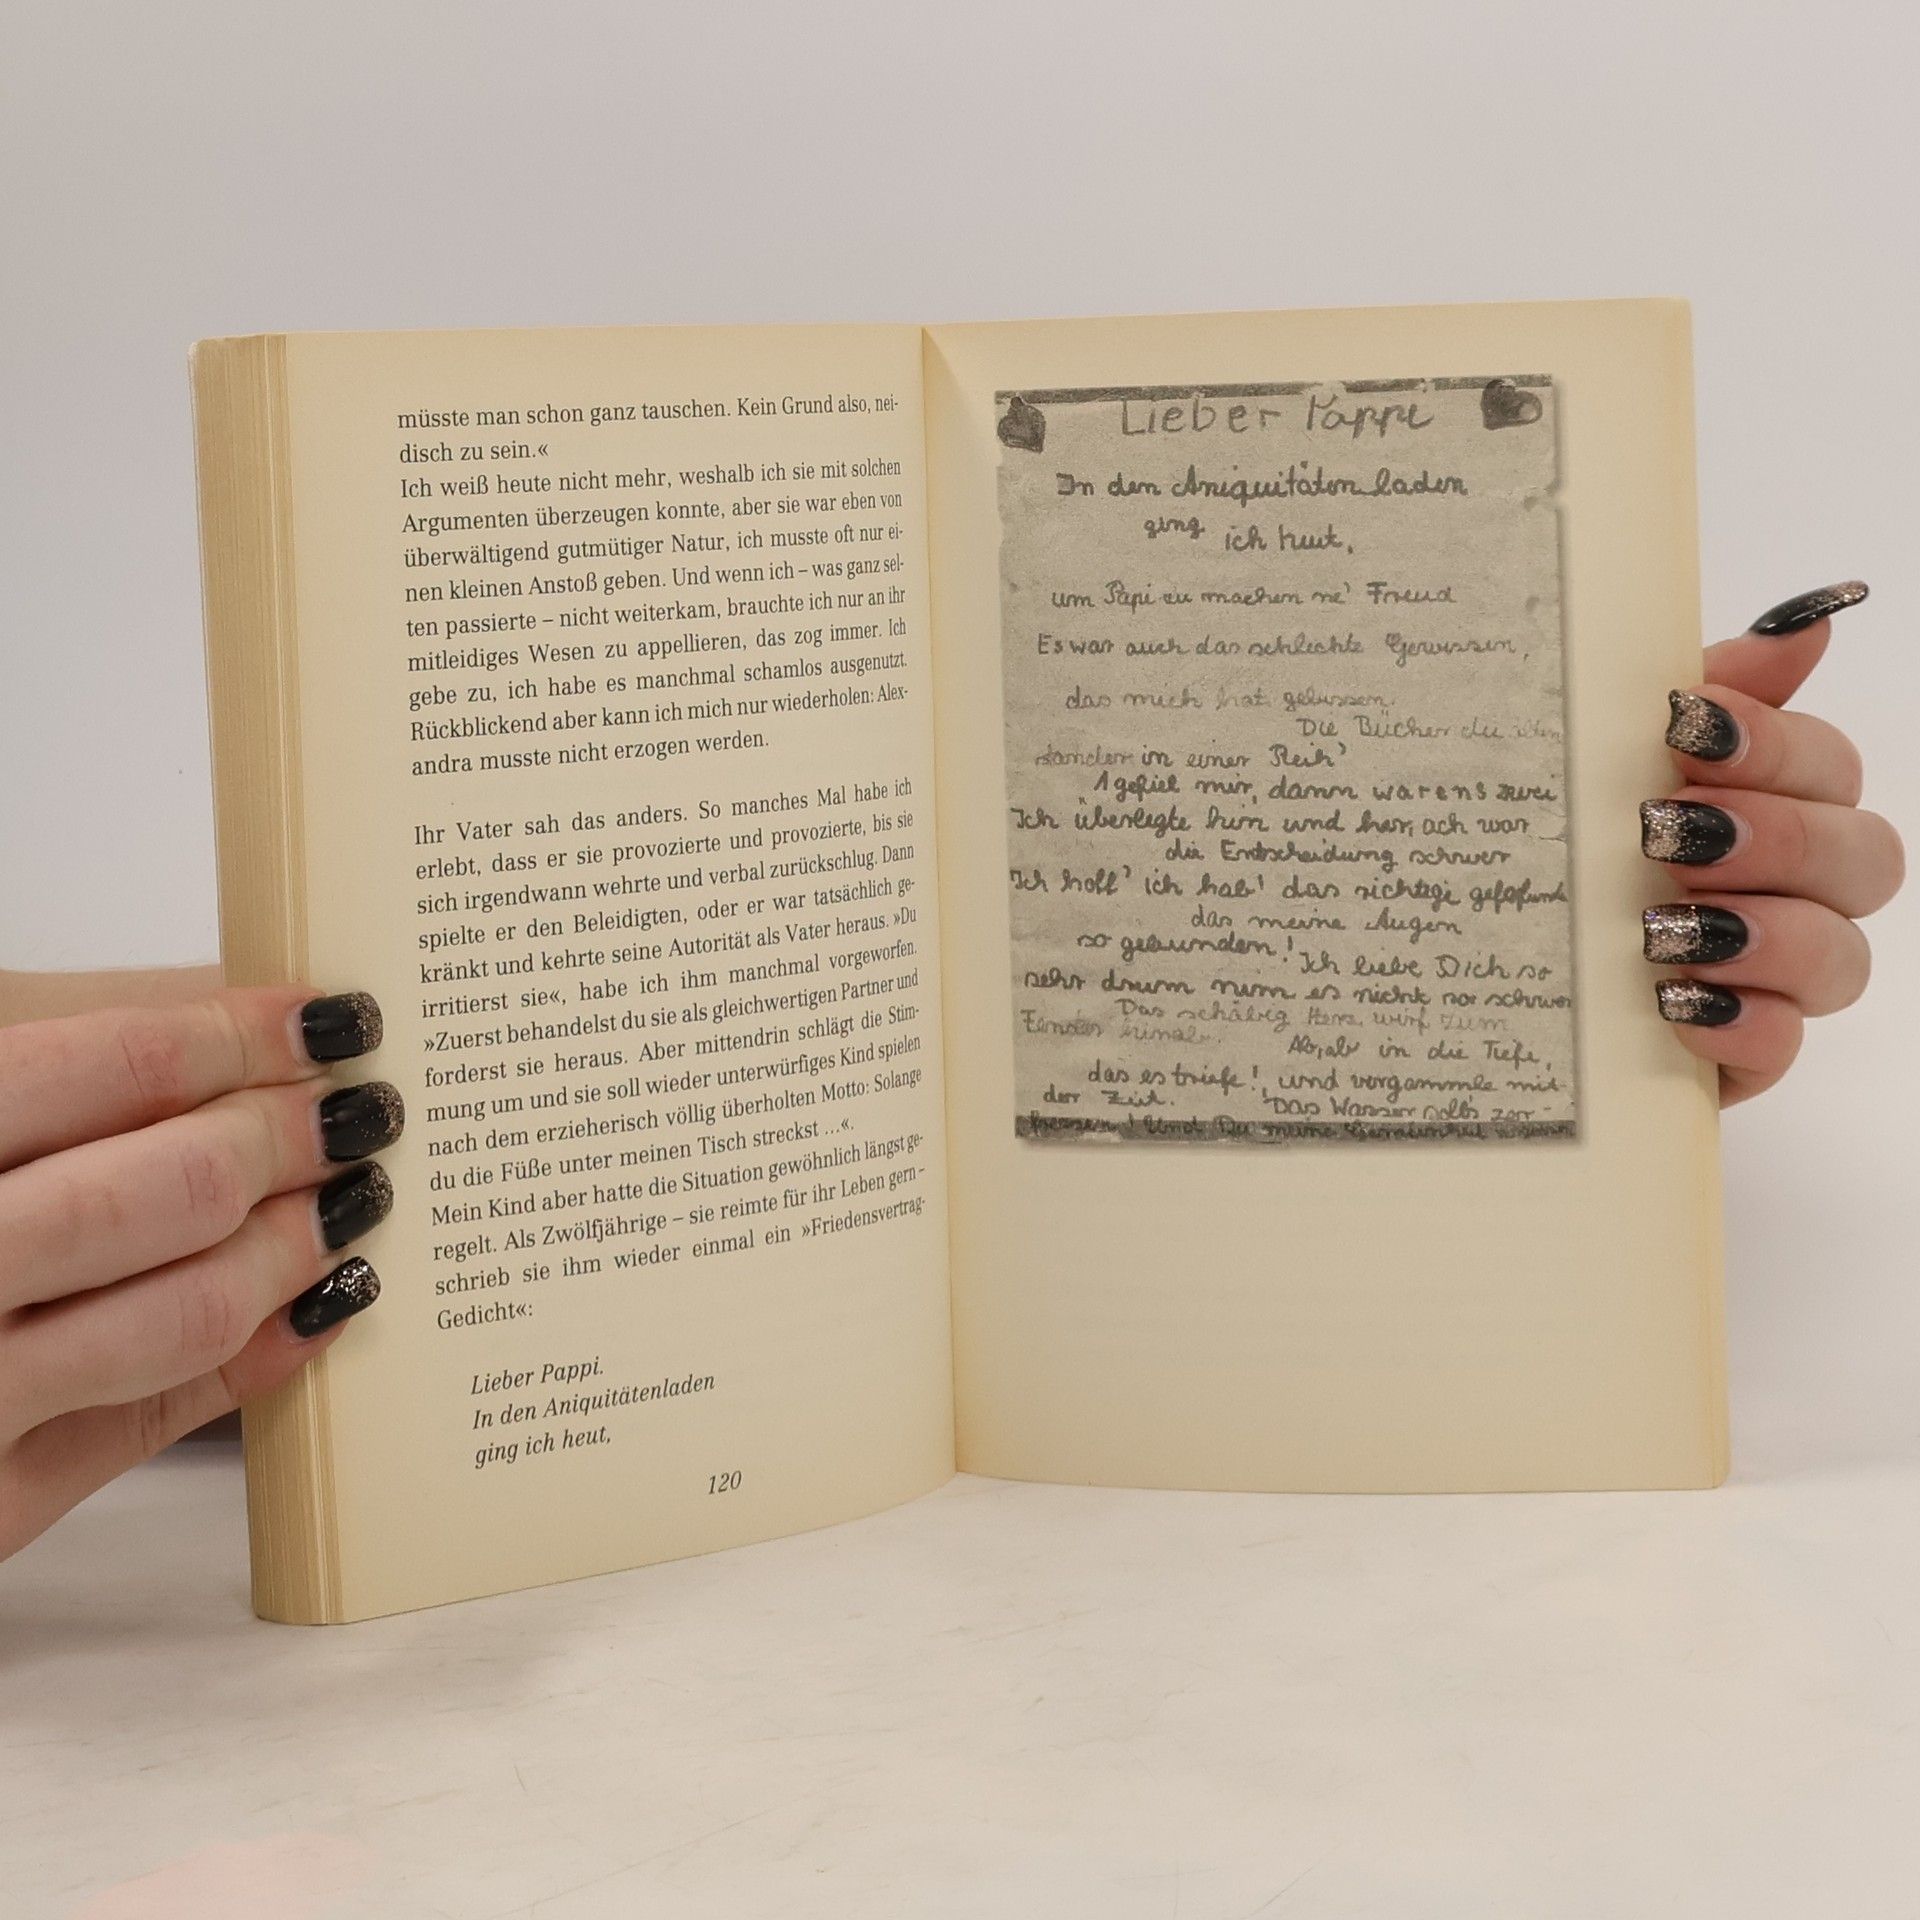 müsste man schon ganz tauschen. Kein Grund also, nei-
disch zu sein.«
Ich weiß heute nicht mehr, weshalb ich sie mit solchen
Argumenten überzeugen konnte, aber sie war eben von
überwältigend gutmütiger Natur, ich musste oft nur ei-
nen kleinen Anstoß geben. Und wenn ich – was ganz sel-
ten passierte – nicht weiterkam, brauchte ich nur an ihr
mitleidiges Wesen zu appellieren, das zog immer. Ich
gebe zu, ich habe es manchmal schamlos ausgenutzt.
Rückblickend aber kann ich mich nur wiederholen: Alex-
andra musste nicht erzogen werden.
Ihr Vater sah das anders. So manches Mal habe ich
erlebt, dass er sie provozierte und provozierte, bis sie
sich irgendwann wehrte und verbal zurückschlug. Dann
spielte er den Beleidigten, oder er war tatsächlich ge-
kränkt und kehrte seine Autorität als Vater heraus. »Du
irritierst sie«, habe ich ihm manchmal vorgeworfen.
»Zuerst behandelst du sie als gleichwertigen Partner und
forderst sie heraus. Aber mittendrin schlägt die Stim-
mung um und sie soll wieder unterwürfiges Kind spielen
nach dem erzieherisch völlig überholten Motto: Solange
du die Füße unter meinen Tisch streckst ...«.
Mein Kind aber hatte die Situation gewöhnlich längst ge-
regelt. Als Zwölfjährige – sie reimte für ihr Leben gern –
schrieb sie ihm wieder einmal ein »Friedensvertrag-
Gedicht«:
Lieber Pappi.
In den Aniquitätenladen
ging ich heut,
120
Lieber Pappi
In den Aniquitätenladen
ging ich heut,
um Papi zu machen ne' Freud
Es war auch das schlechte Gewissen,
das mich hat gebissen.
Die Bücher die alten
standen in einer Reih'
1 gefiel mir, dann warens zwei
Ich überlegte hin und her, ach war
die Entscheidung schwer
Ich hoff' ich hab' das richtige
das meine Augen
so gebunden!
Ich liebe Dich so
sehr drum nimm es nicht so schwer
Das schäbig Herz wirf zum
Fenster hinab.
Ab, ab in die Tiefe,
das es triefe!, und vergammle mit
der Zeit.
Das Wasser solls zer-
fressen! Und Du meine Gemeinheit